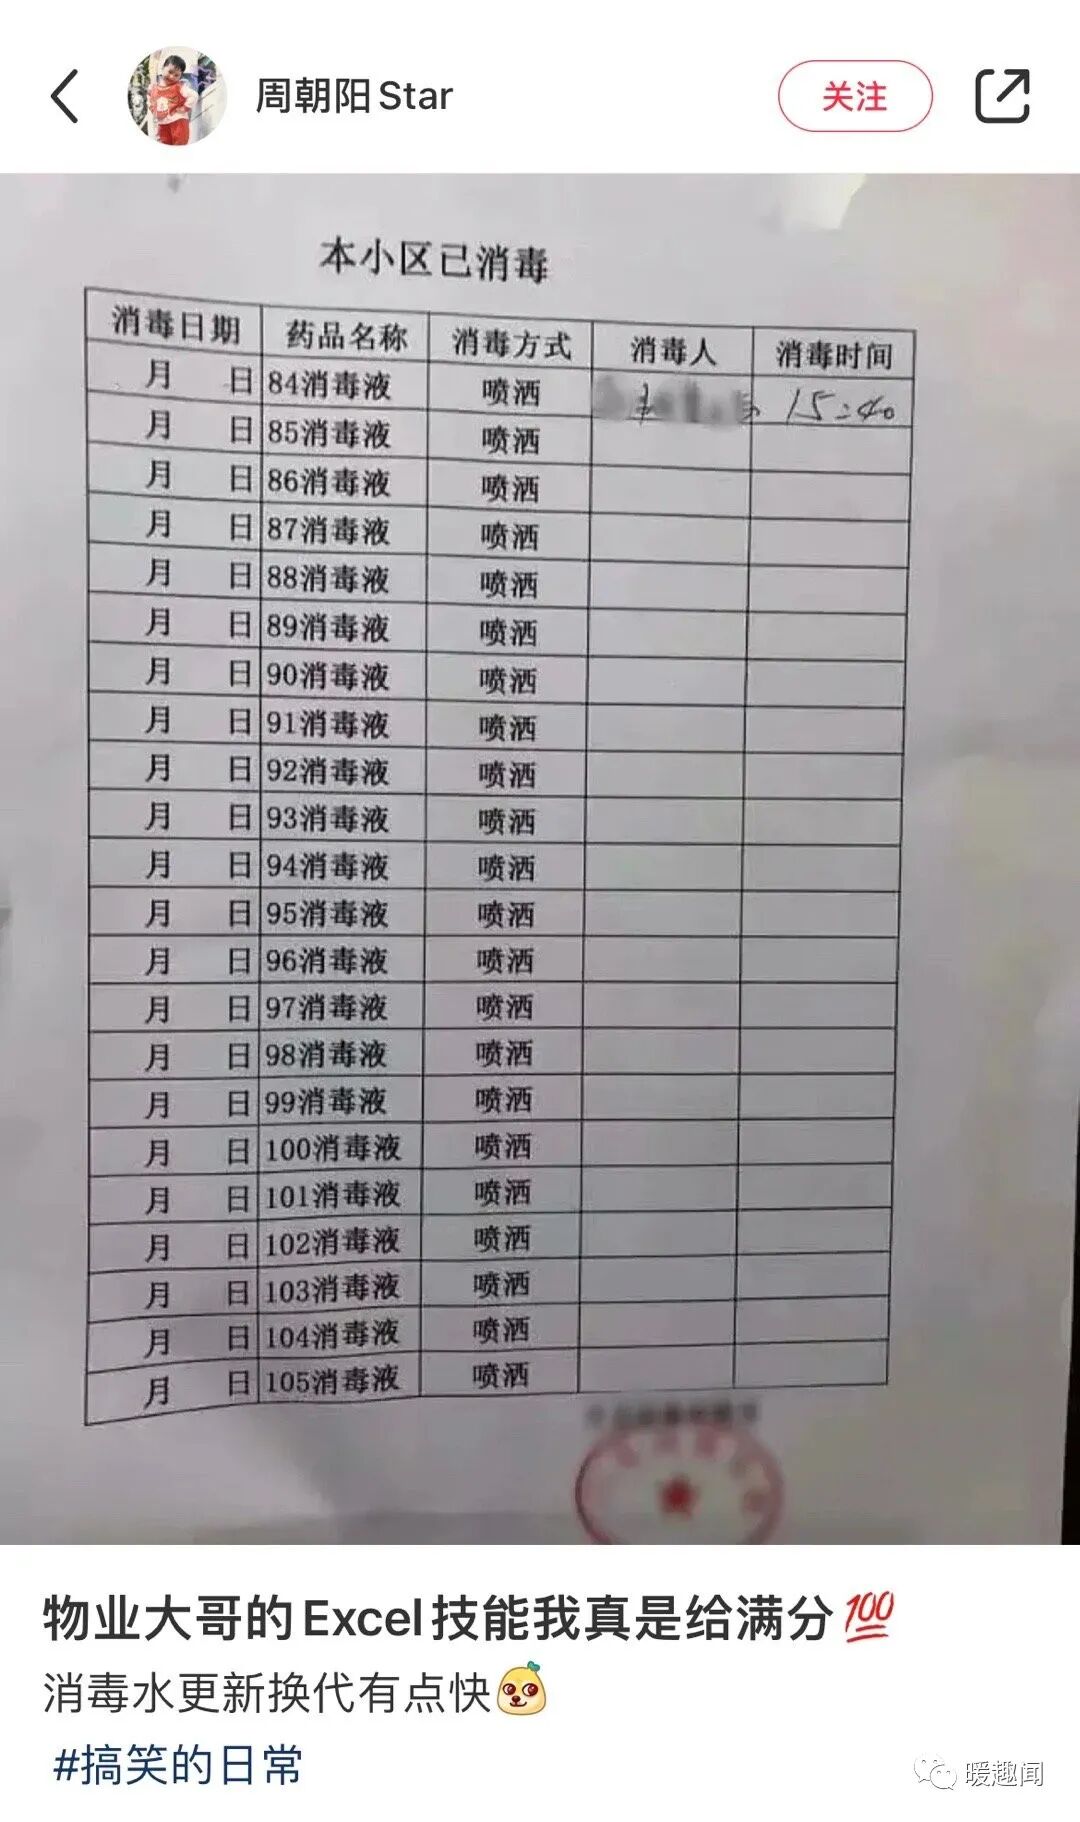 周朝阳Star
关注
本小区已消毒
消毒日期 药品名称 消毒方式 消毒人 消毒时间
月 日 84消毒液 喷洒 15:40
月 日 85消毒液 喷洒
月 日 86消毒液 喷洒
月 日 87消毒液 喷洒
月 日 88消毒液 喷洒
月 日 89消毒液 喷洒
月 日 90消毒液 喷洒
月 日 91消毒液 喷洒
月 日 92消毒液 喷洒
月 日 93消毒液 喷洒
月 日 94消毒液 喷洒
月 日 95消毒液 喷洒
月 日 96消毒液 喷洒
月 日 97消毒液 喷洒
月 日 98消毒液 喷洒
月 日 99消毒液 喷洒
月 日 100消毒液 喷洒
月 日 101消毒液 喷洒
月 日 102消毒液 喷洒
月 日 103消毒液 喷洒
月 日 104消毒液 喷洒
月 日 105消毒液 喷洒
物业大哥的Excel技能我真是给满分💯
消毒水更新换代有点快
#搞笑的日常
暖趣闻